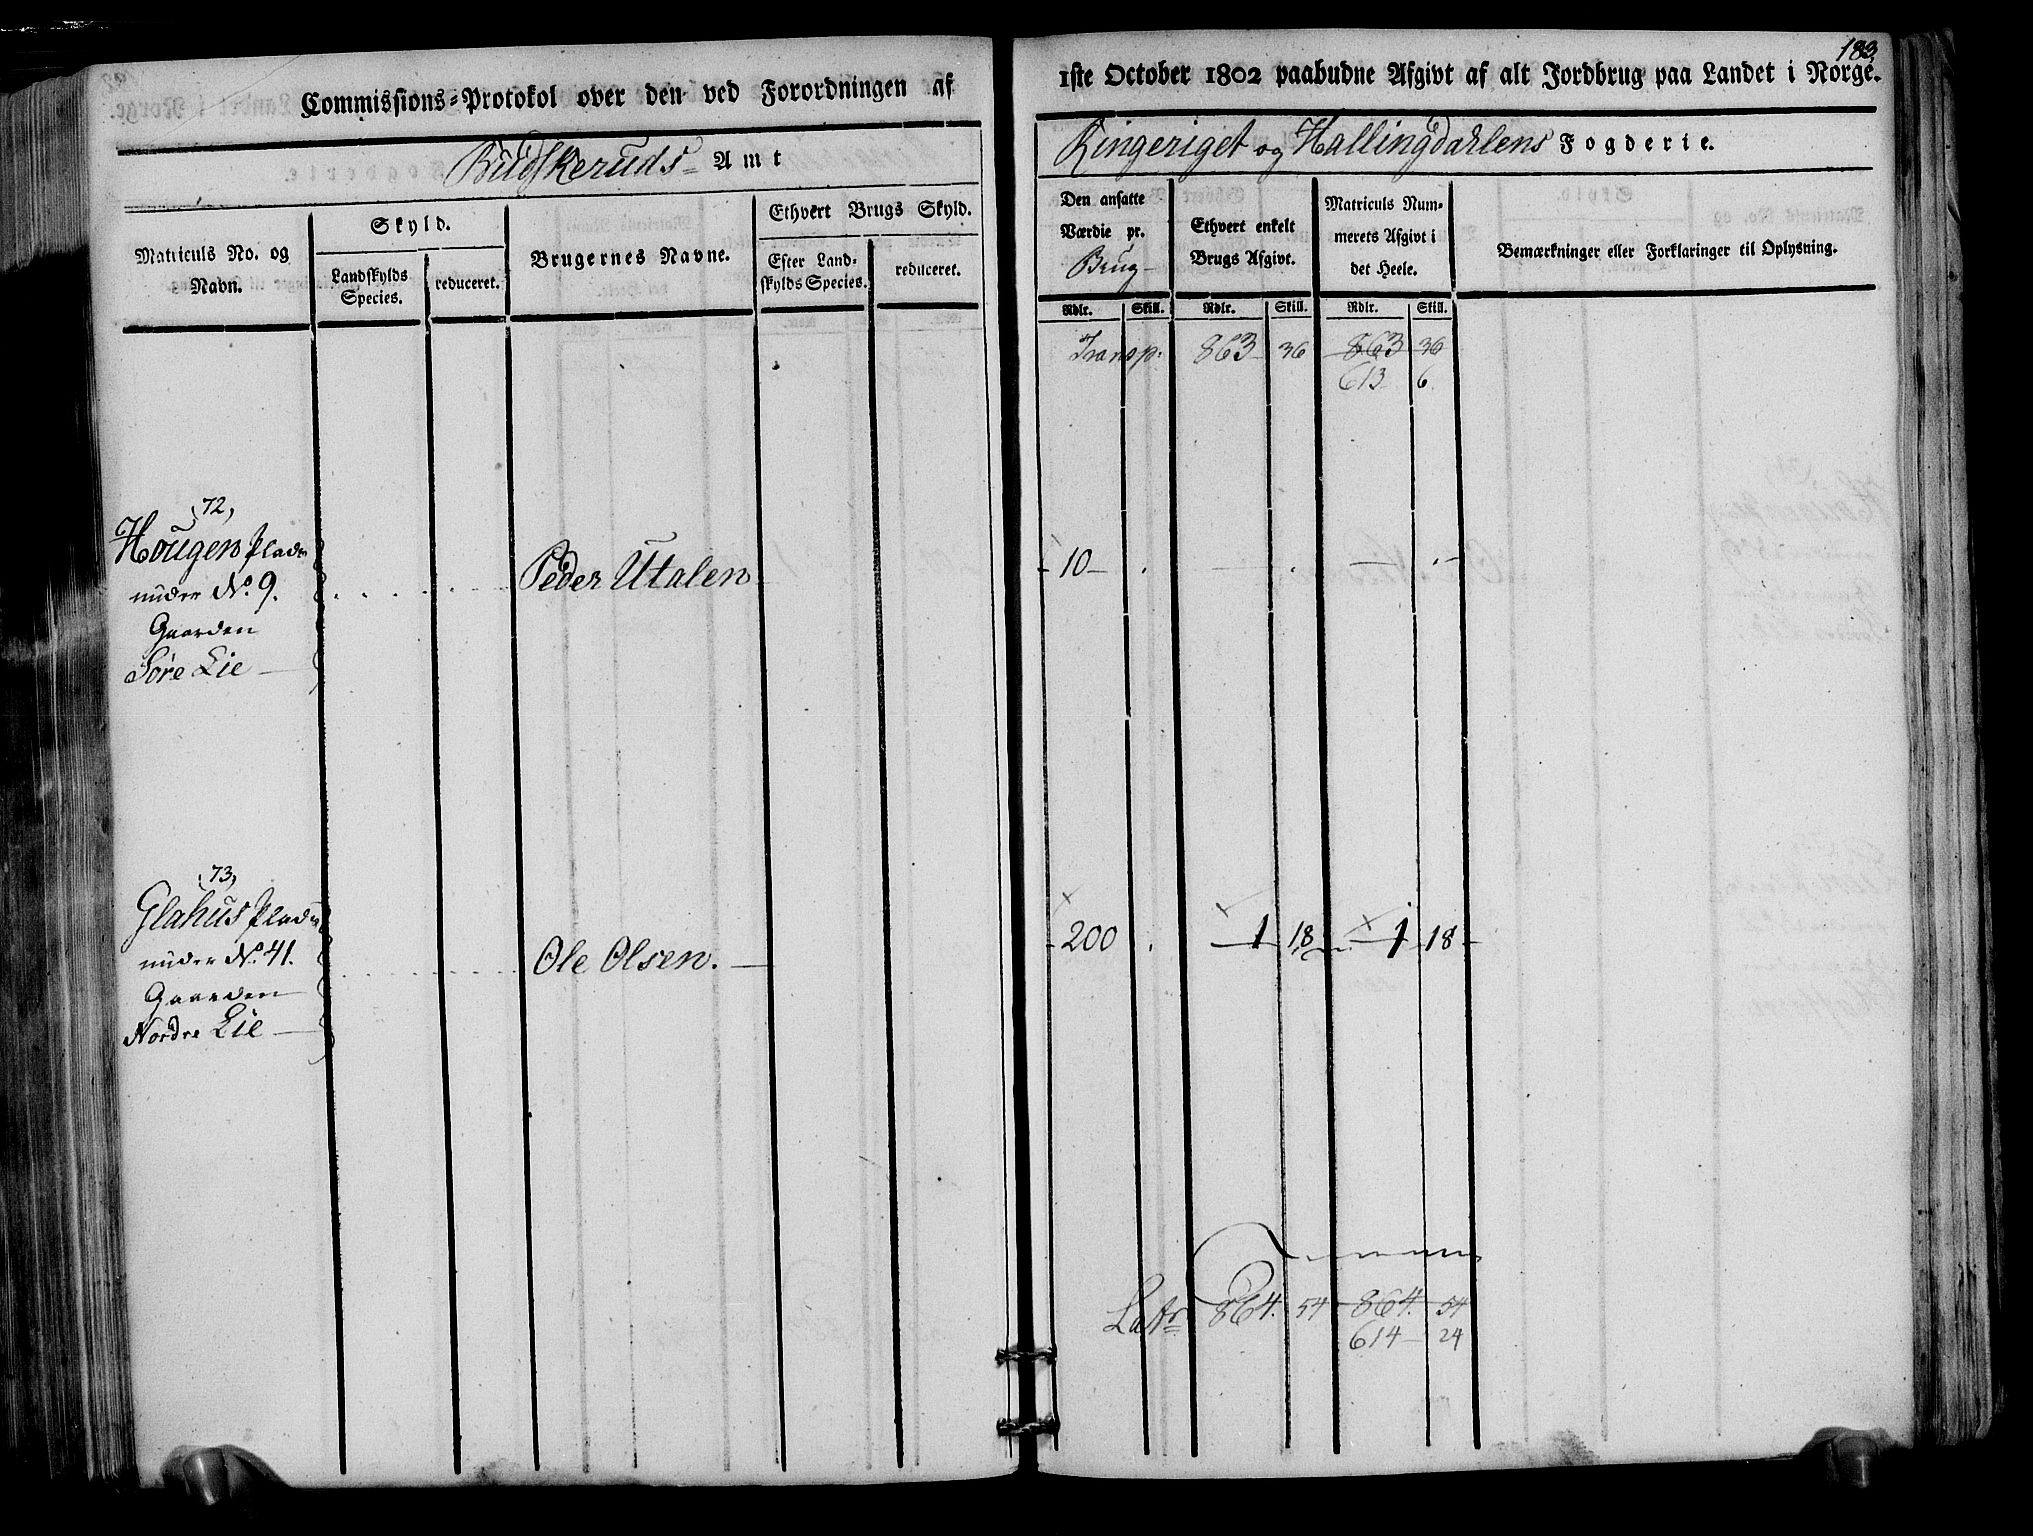 183
Commissions-Protokol over den ved Forordningen af
1ste October 1802 paabudne Afgivt af alt Jordbrug paa Landet i Norge.
Budskeruds Amt
Ringeriget og Hallingdahlens Fogderie.
Matriculs No. og Navn.
Skyld.
Landskylds Species.
reduceret.
Brugernes Navne.
Ethvert Brugs Skyld.
Efter Landskylds Species.
reduceret.
Den ansatte Værdie pr. Brug
Ethvert enkelt Brugs Afgivt.
Matriculs Nummerets Afgivt i det Heele.
Bemærkninger eller Forklaringer til Oplysning.
Rdlr. Skill. Rdlr. Skill. Rdlr. Skill.
Transp. 863 36 863 36
613 6
72,
Hougen Plads
under No. 9.
Gaarden
Søre Lie
Peder Utalen
10
73,
Glahus Plads
under No. 41.
Gaarden
Nordre Lie
Ole Olsen.
200 1 18 1 18
Latr 864. 54 864. 54
614 24